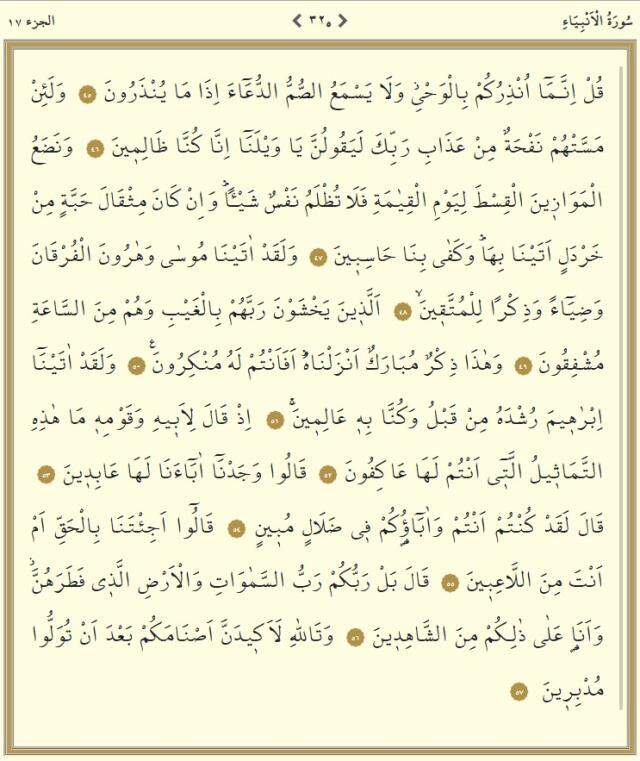 سُورَةُ الْاَنْبِيَاءِ ٣٢٥ الجزء ١٧
قُلْ اِنَّمَٓا اُنْذِرُكُمْ بِالْوَحْيِۘ وَلَا يَسْمَعُ الصُّمُّ الدُّعَٓاءَ اِذَا مَا يُنْذَرُونَ ٤٥ وَلَئِنْ
مَسَّتْهُمْ نَفْحَةٌ مِنْ عَذَابِ رَبِّكَ لَيَقُولُنَّ يَا وَيْلَنَٓا اِنَّا كُنَّا ظَالِم۪ينَ ٤٦ وَنَضَعُ
الْمَوَاز۪ينَ الْقِسْطَ لِيَوْمِ الْقِيٰمَةِ فَلَا تُظْلَمُ نَفْسٌ شَيْـًٔاۜ وَاِنْ كَانَ مِثْقَالَ حَبَّةٍ مِنْ
خَرْدَلٍ اَتَيْنَا بِهَاۜ وَكَفٰى بِنَا حَاسِب۪ينَ ٤٧ وَلَقَدْ اٰتَيْنَا مُوسٰى وَهٰرُونَ الْفُرْقَانَ
وَضِيَٓاءً وَذِكْرًا لِلْمُتَّق۪ينَۙ ٤٨ اَلَّذ۪ينَ يَخْشَوْنَ رَبَّهُمْ بِالْغَيْبِ وَهُمْ مِنَ السَّاعَةِ
مُشْفِقُونَ ٤٩ وَهٰذَا ذِكْرٌ مُبَارَكٌ اَنْزَلْنَاهُۜ اَفَاَنْتُمْ لَهُ مُنْكِرُونَ۟ ٥٠ وَلَقَدْ اٰتَيْنَٓا
اِبْرٰه۪يمَ رُشْدَهُ مِنْ قَبْلُ وَكُنَّا بِه۪ عَالِم۪ينَۚ ٥١ اِذْ قَالَ لِاَب۪يهِ وَقَوْمِه۪ مَا هٰذِهِ
التَّمَاث۪يلُ الَّت۪ٓي اَنْتُمْ لَهَا عَاكِفُونَ ٥٢ قَالُوا وَجَدْنَٓا اٰبَٓاءَنَا لَهَا عَابِد۪ينَ ٥٣
قَالَ لَقَدْ كُنْتُمْ اَنْتُمْ وَاٰبَٓاؤُ۬كُمْ ف۪ي ضَلَالٍ مُب۪ينٍ ٥٤ قَالُٓوا اَجِئْتَنَا بِالْحَقِّ اَمْ
اَنْتَ مِنَ اللَّاعِب۪ينَ ٥٥ قَالَ بَلْ رَبُّكُمْ رَبُّ السَّمٰوَاتِ وَالْاَرْضِ الَّذ۪ي فَطَرَهُنَّۘ
وَاَنَا۬ عَلٰى ذٰلِكُمْ مِنَ الشَّاهِد۪ينَ ٥٦ وَتَاللّٰهِ لَاَك۪يدَنَّ اَصْنَامَكُمْ بَعْدَ اَنْ تُوَلُّوا
مُدْبِر۪ينَ ٥٧